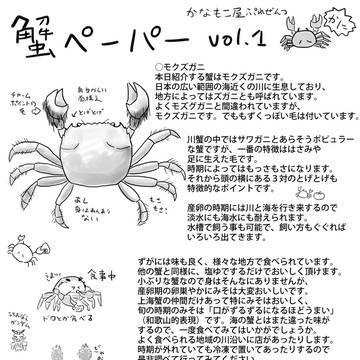 かなもこ屋ぷれぜんつ
かに
蟹ペーパー vol.1
〇モクズガニ
本日紹介する蟹はモクズガニです。
日本の広い範囲の海近くの川に生息しており、
地方によってはズガニとも呼ばれています。
よくモズグガニと間違われていますが、
モクズガニです。でももずくっぽい毛は付いています。
川蟹の中ではサワガニとあらそうポピュラー
な蟹ですが、一番の特徴ははさみや
足に生えた毛です。
時期によってはもっさもさになります。
それから頭の横にある３対のとげとげも
特徴的なポイントです。
産卵の時期には川と海を行き来するので
淡水にも海水にも耐えれます。
水槽で飼う事も可能で、飼い方もぐぐれば
いろいろ出てきます。
チャーム
ポイントの
毛
とげとげ
食事中
ずがには味も良く、様々な地方で食べられています。
他の蟹と同様に、塩ゆでするだけでおいしく頂けます。
小ぶりな蟹なので身はそんなにありませんが、
産卵期の卵巣やかにみそは大変おいしいです。
上海蟹の仲間だけあって特にみそはおいしく、
旬の時期のみそは「口がずるずるになるほどうまい」
（和歌山的表現）です。海の蟹とはまた違った味が
するので、一度食べてみてはいかがでしょうか。
よく食べられる地域の川沿いに店があったりします。
時期が外れていても冷凍で置いてあったりするので